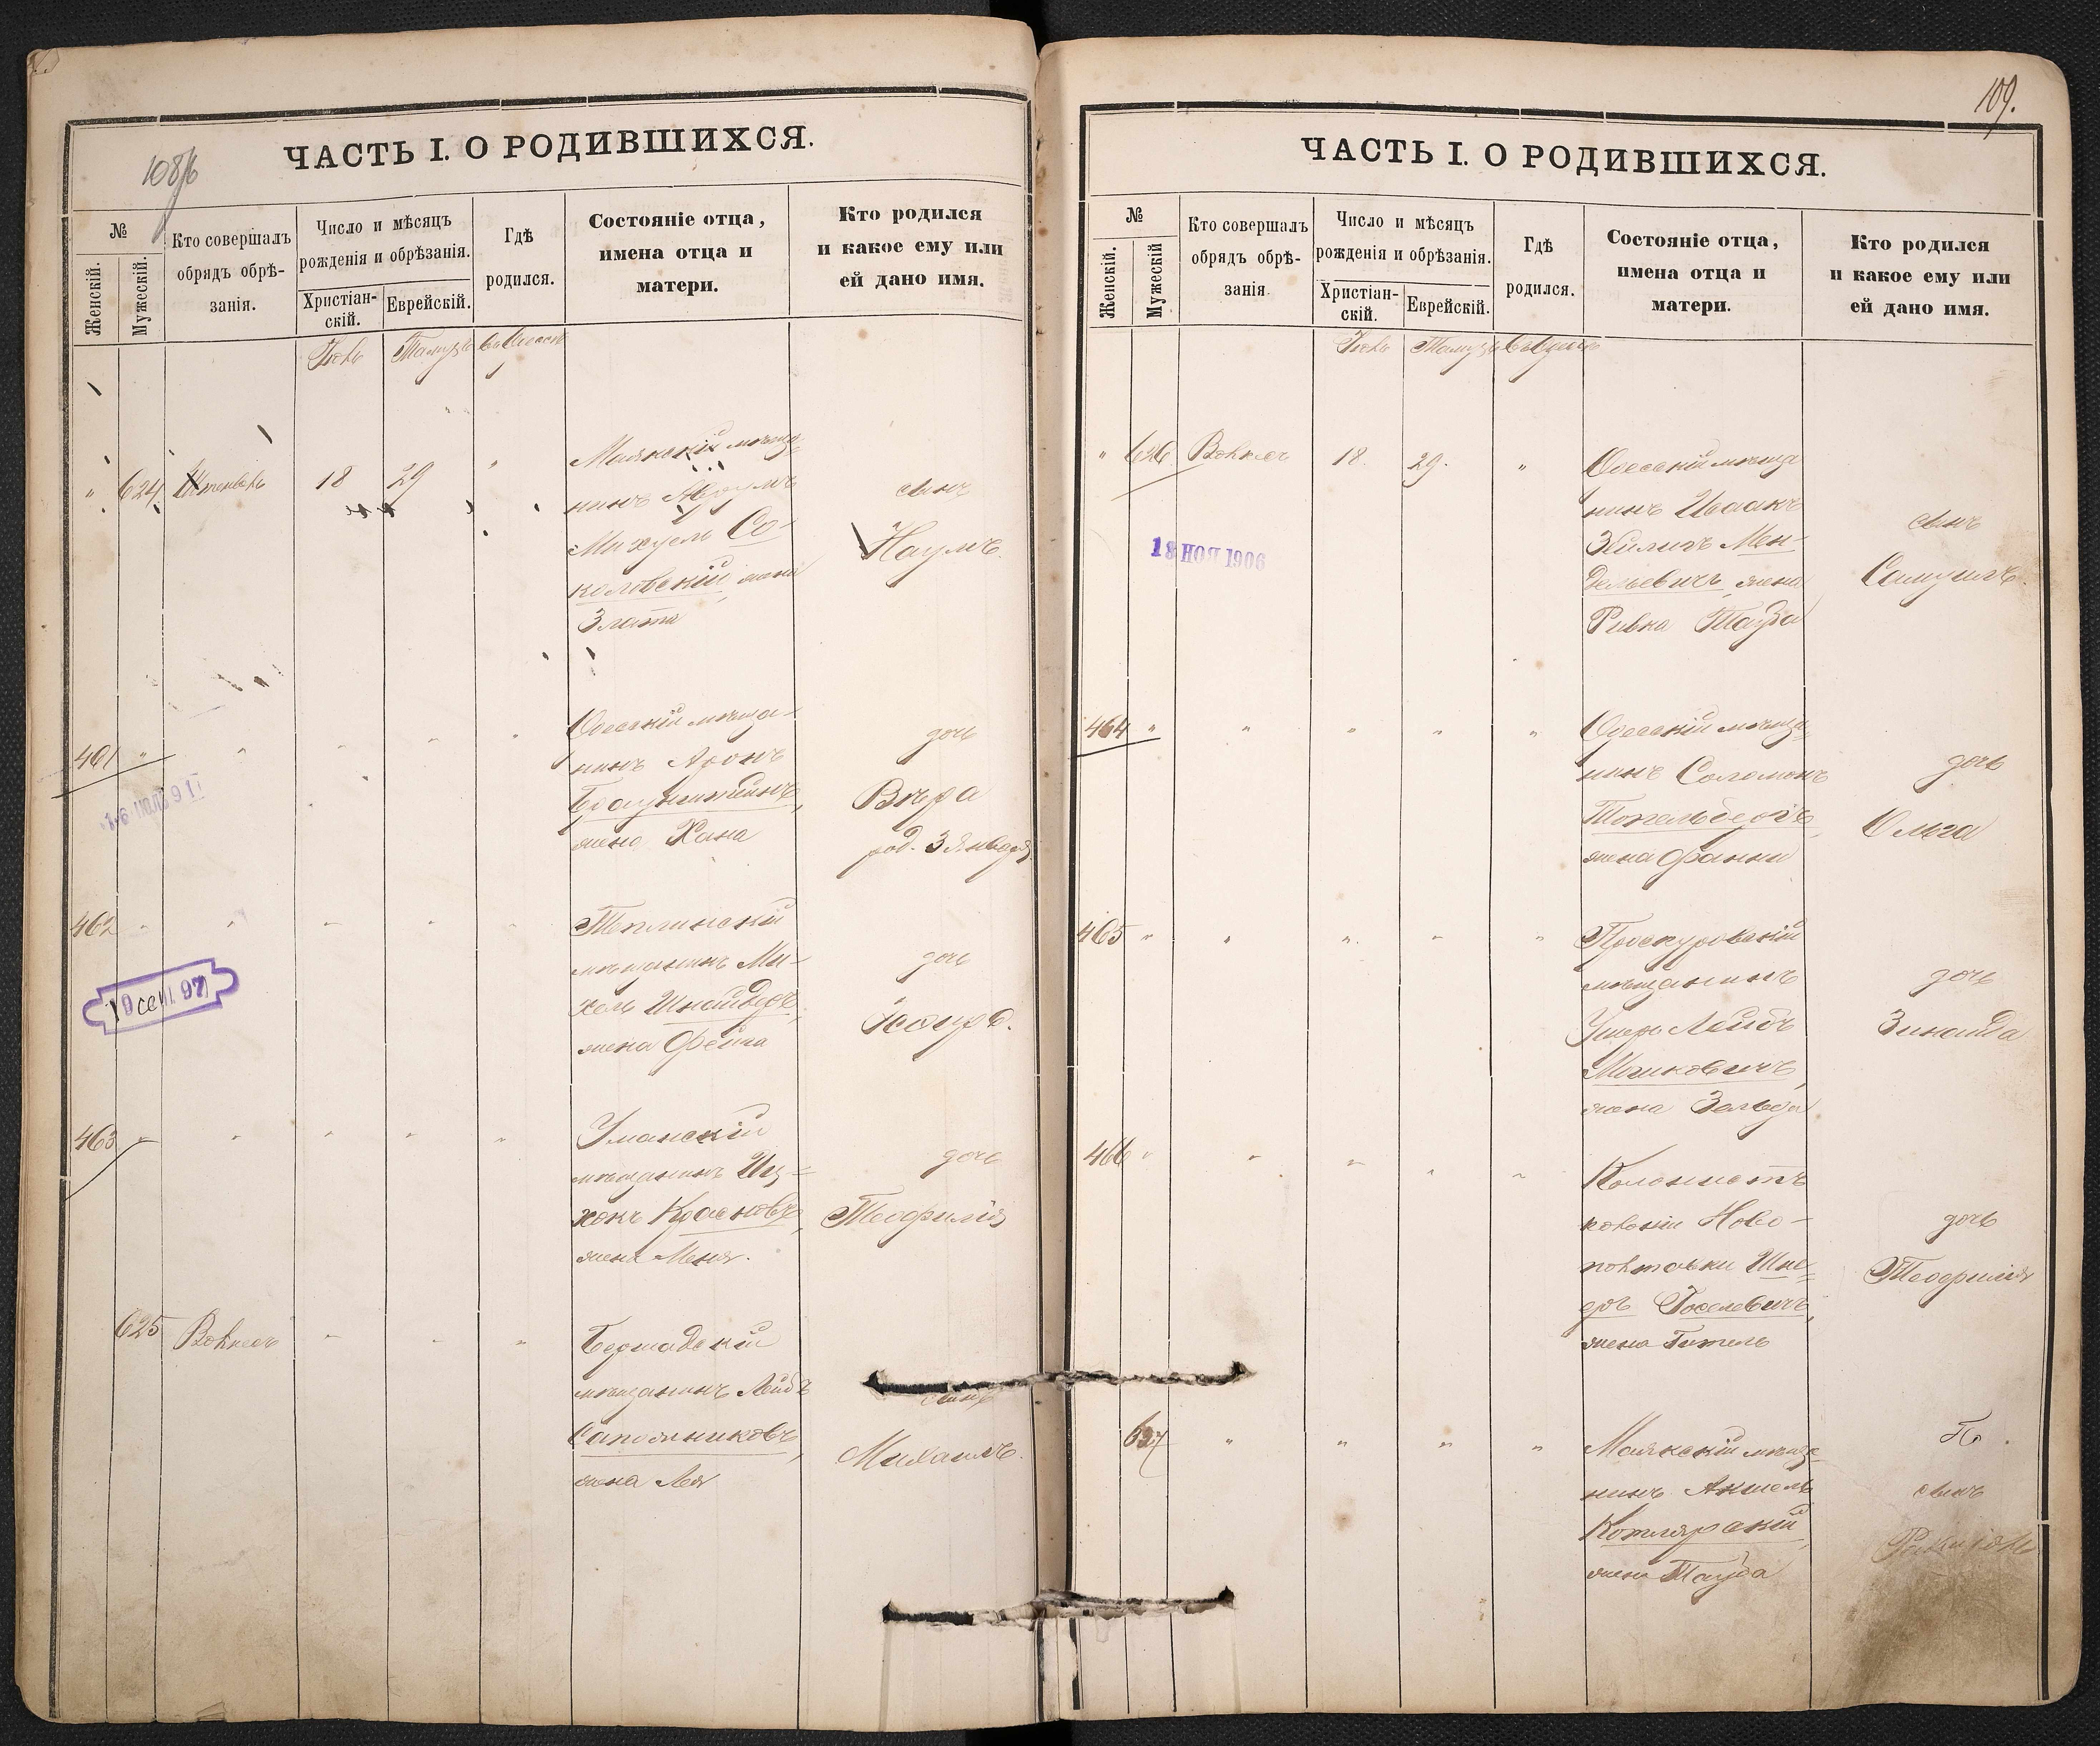 108/б
ЧАСТЬ I. О РОДИВШИХСЯ.
№
Женскій.
Мужескій.
Кто совершалъ
обрядъ обрѣ-
занія.
Число и мѣсяцъ
рожденія и обрѣзанія.
Христіан-
скій.
Еврейскій.
Гдѣ
родился.
Состояніе отца,
имена отца и
матери.
Кто родился
и какое ему или
ей дано имя.
Тамузъ
" 624 18 29 "
Маякскій мѣща-
нинъ
Со-
коловскій, жена
Злата
сынъ
Наумъ.
461 "
Одесскій мѣща-
нинъ Аронъ
Браунштейнъ,
жена Хана
дочь
Вѣра
род. 3 Января
462
Теплинскій
мѣщанинъ Ми-
хель Шнайдеръ,
жена Фейга
дочь
463
Уманскій
мѣщанинъ Иц-
хокъ Красновъ,
жена Меня.
дочь
Теофилія
625
Бершадскій
мѣщанинъ Лейбъ
Сапожниковъ,
жена Лея
сынъ
Михаилъ.
10 сен 97
109.
ЧАСТЬ I. О РОДИВШИХСЯ.
№
Женскій.
Мужескій
Кто совершалъ
обрядъ обрѣ-
занія.
Число и мѣсяцъ
рожденія и обрѣзанія.
Христіан-
скій.
Еврейскій.
Гдѣ
родился.
Состояніе отца,
имена отца и
матери.
Кто родился
и какое ему или
ей дано имя.
Тамузъ
" 626 18. 29. "
Одесскій мѣща
нинъ Исаакъ
Зейлигъ Мен-
дельевичъ, жена
Ривка Тауба
сынъ
Самуилъ.
18 НОЯ 1906
464 "
Одесскій мѣща-
нинъ Соломонъ
Топельбергъ,
жена Фанни
дочь
Ольга
465 "
Проскуровскій
мѣщанинъ
Ушеръ Лейбъ
Мошковичъ,
жена Зельда
дочь
Зинаида
466 "
Колонистъ
колоніи Ново-
полтавки
Іоселевичъ,
жена Гитель
дочь
Теофилія
627
Маякскій мѣща-
нинъ Аншель
Котлярскій,
жена Тауба
сынъ